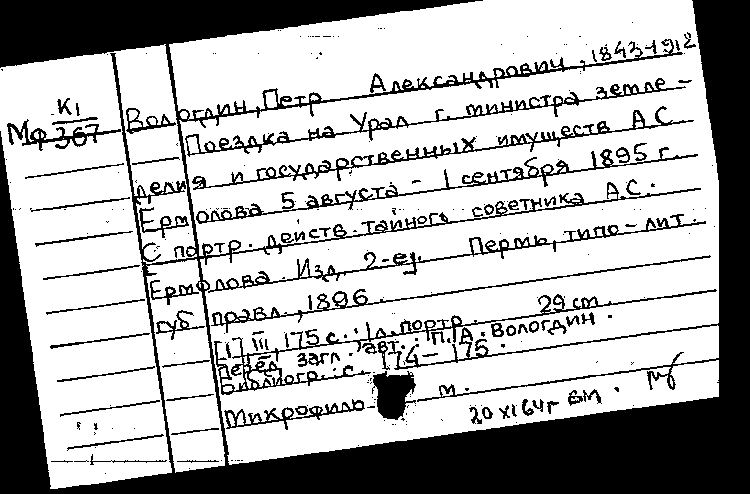 К1
Мф 367
Вологдин, Петр Александрович, 1843-1912
Поездка на Урал г. министра земле-
делия и государственных имуществ А.С.
Ермолова 5 августа - 1 сентября 1895 г.
С портр. действ. тайного советника А.С.
Ермолова. Изд. 2-е. Пермь, типо-лит.
губ правл., 1896.
[1] III, 175 с. 1 л. портр. 29 cm.
Перед загл. авт.: П. А. Вологдин.
Библиогр.: с. 174-175.
Микрофиль м.
20 XI 64г вм.